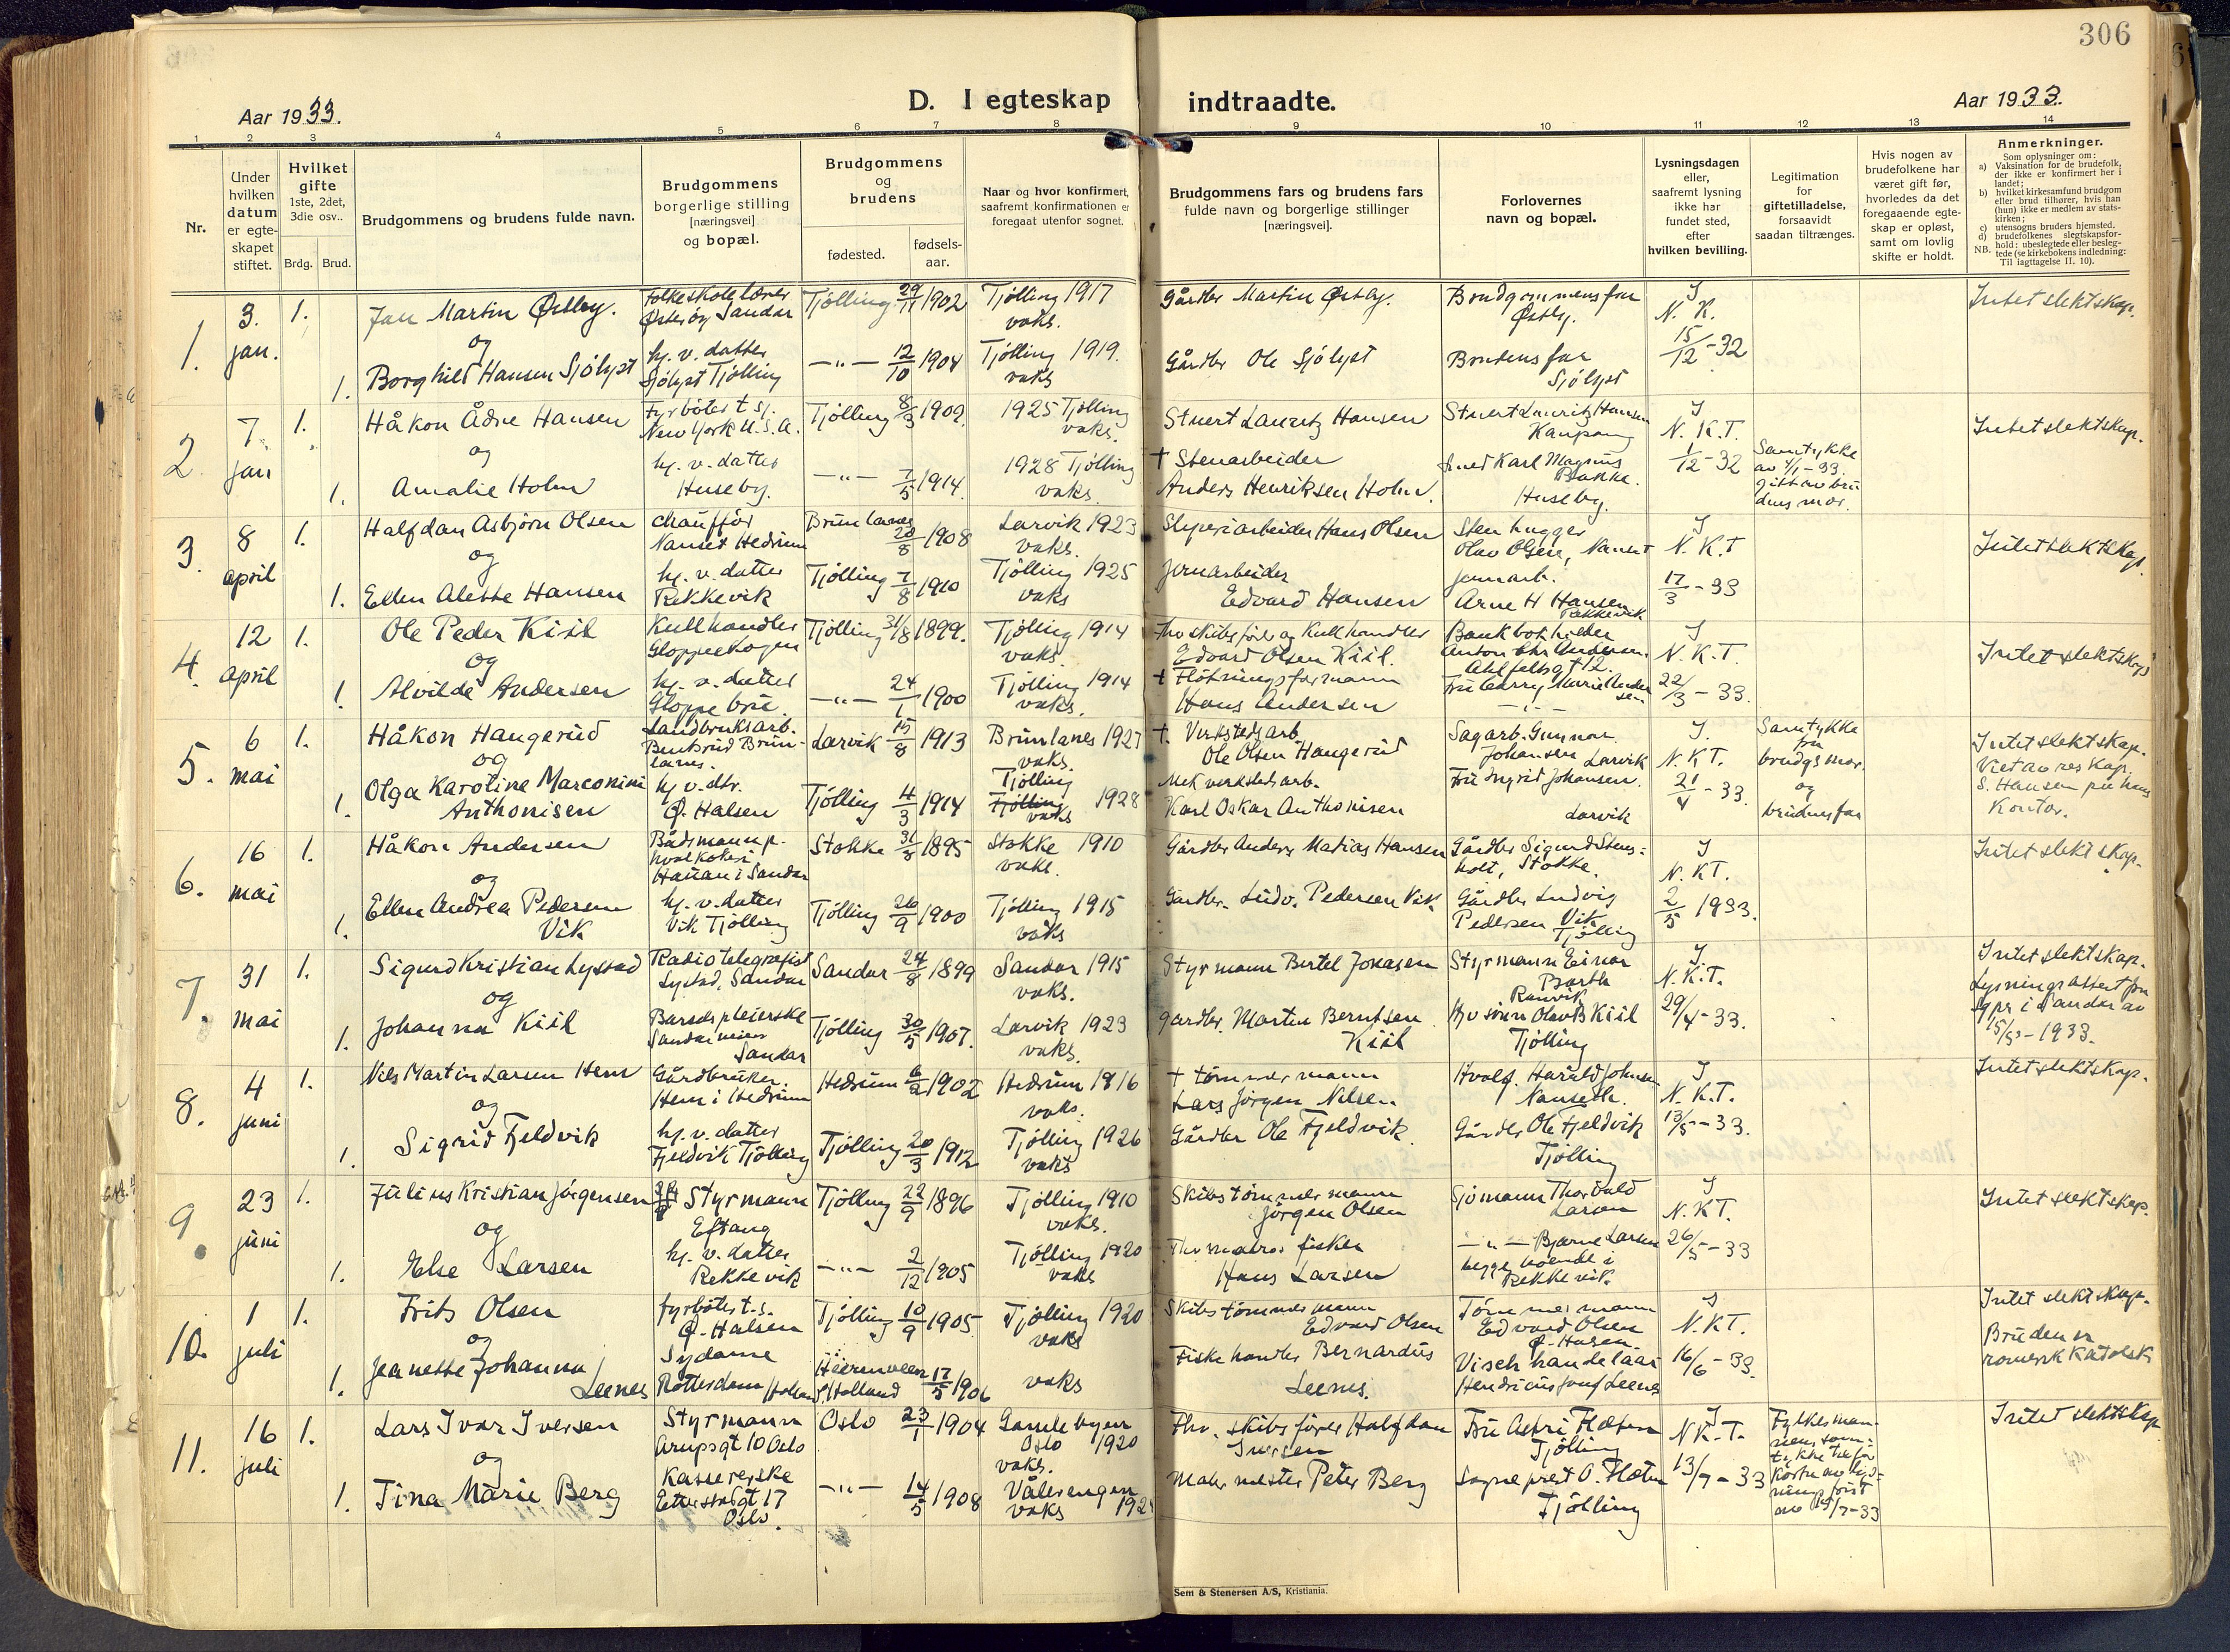 306
Aar 1933.
D. I egteskap indtraadte.
Aar 1933.
1 2 3 4 5 6 7 8 9 10 11 12 13 14
Nr.
Under hvilken datum er egteskapet stiftet.
Hvilket gifte
1ste, 2det, 3die osv..
Brdg. Brud.
Brudgommens og brudens fulde navn.
Brudgommens borgerlige stilling [næringsvei] og bopæl.
Brudgommens og brudens
fødested.
fødsels-aar.
Naar og hvor konfirmert, saafremt konfirmationen er foregaat utenfor sognet.
Brudgommens fars og brudens fars fulde navn og borgerlige stillinger [næringsvei].
Forlovernes navn og bopæl.
Lysningsdagen eller, saafremt lysning ikke har fundet sted, efter hvilken bevilling.
Legitimation for giftetilladelse, forsaavidt saadan tiltrænges.
Hvis nogen av brudefolkene har været gift før, hvorledes da det foregaaende egteskap er opløst, samt om lovlig skifte er holdt.
Anmerkninger.
Som oplysninger om:
a) Vaksination for de brudefolk, der ikke er konfirmert her i landet;
b) hvilket kirkesamfund brudgom eller brud tilhører, hvis han (hun) ikke er medlem av statskirken;
c) utensogns bruders hjemsted.
d) brudefolkenes slegtskapsforhold: ubeslegtede eller beslegtede (se kirkebokens indledning: NB. Til iagttagelse II. 10).
1. 3. jan. 1. Jan Martin Østby. Folkeskolelærer Østerøy Sandar Tjølling 29/11 1902 Tjølling 1917 vaks. Gårdbr Martin Østby. Brudgommens far Østby. I N. K. 15/12-32 Intet slektskap.
og
1. Borghild Hansen Sjölyst hj. v. datter Sjölyst Tjölling —"— 12/10 1904 Tjölling 1919. vaks Gårdbr Ole Sjölyst Brudens far Sjölyst
2. 7. jan 1. Håkon Ådne Hansen Fyrböter t. sj. New York U.S.A. Tjölling 8/3 1902 1925 Tjölling vaks. Stuert Lauritz Hansen Stuert Lauritz Hansen Kaupang I N. K.T. 1/12-32 Samtykke av 4/1-33 gitt av brudens mor. Intet slektskap.
og
1. Amalie Holm hj. v. datter Huseby. —"— 7/5 1914. 1928 Tjölling vaks. † Stenarbeider Anders Henriksen Holm. Smed Karl Magnus Bakke. Huseby.
3. 8 april 1. Halfdan Asbjørn Olsen chauffør Nanset Hedrum Brunlanes 20/8 1908 Larvik 1923 vaks. Sliperiarbeider Hans Olsen Stenhugger Olav Olsen, Nanset I N. K.T 17/3-33 Intet slektskap.
og
1. Ellen Alette Hansen hj. v. datter Rekkevik Tjölling 7/8 1910 Tjölling 1925 vaks Jernarbeider Edvard Hansen Jernarb. Arne H Hansen Rekkevik
4. 12 april 1. Ole Peder Kiil Kullhandler Gloppeskogen Tjölling 31/8 1899. Tjölling 1914 vaks. Fhv skibsförer og Kullhandler Edvard Olsen Kiil. Bankbokholder Anton Chr Andersen. Ahlfeltsgt 12. I N. K.T. 22/3-33. Intet slektskap
og
1. Alvilde Andersen hj. v. datter Gloppe bru. —"— 24/1 1900 Tjölling 1914 vaks. † Flötningsformann Hans Andersen Fru Carry Marie Andersen
5. 6 mai 1. Håkon Haugerud Landbruksarb. Brunlanes. Larvik 15/8 1913 Brunlanes 1927 vaks. † Verkstedsarb. Ole Olsen Haugerud Sagarb. Gunnar Johansen Larvik I. N. K.T. 21/4-33. Samtykke fra brudgs mor. og brudens far Intet slektskap. Viet av res Kap. S. Hansen på hans Kontor.
og
1. Olga Karoline Marconini Anthonisen hj v. dtr. Ö. Halsen Tjölling 4/3 1914 Tjölling 1928 vaks Mek verkstedsarb. Karl Oskar Anthonisen Fru Ingrid Johansen. Larvik
6. 16 mai 1. Håkon Andersen Båtsmann p. hvalkokeri Hauan i Sandar Stokke 31/8 1895 Stokke 1910 vaks. Gårdbr Anders Matias Hansen Gårdbr Sigurd Stensholt, Stokke. I N. KT. 2/5 1933. Intet slektskap.
og
1. Ellen Andrea Pedersen Vik hj. v. datter Vik Tjölling Tjölling 26/9 1900 Tjölling 1915 vaks Gårdbr. Ludv. Pedersen Vik Gårdbr Ludvig Pedersen Vik Tjölling
7. 31 mai 1. Sigurd Kristian Lystad Radiotelegrafist Lystad, Sandar Sandar 24/8 1899 Sandar 1915 vaks. Styrmann Bertel Jonassen Styrmann Einar Barth Ranvik I. N.K.T. 29/4-33. Intet slektskap. Lysningsattest fra spr i Sandar av 15/5-1933.
og
1. Johanna Kiil Barselpleierske Sandar Tjölling 30/5 1907. Larvik 1923 vaks. gårdbr. Martin Berntsen Kiil Olav B Kiil Tjölling
8. 4 juni 1. Nils Martin Larsen Hem Gårdbruker. Hem i Hedrum Hedrum 6/2 1902 Hedrum 1916 vaks. † tömmermann Lars Jörgen Nilsen. Hvalf. Harald Johnsen Nanseth. I N. K.T. 13/5-33. Intet slektskap.
og
1. Sigrid Fjeldvik hj. v. datter Fjeldvik Tjölling Tjölling 20/3 1912 Tjölling 1926 vaks Gårdbr Ole Fjeldvik. Gårdbr Ole Fjeldvik Tjölling
9. 23 juni 1. Julius Kristian Jörgensen Styrmann Eftang Tjölling 22/9 1896 Tjölling 1910 vaks. Skibstömmermann Jörgen Olsen Sjömann Thorvald Larsen I N. KT. 26/5-33 Intet slektskap.
og
1. Else Larsen hj. v. datter Rekkevik —"— 2/12 1905 Tjölling 1920 vaks Fhv matros fisker Hans Larsen —"— Bjarne Larsen begge boende i Rekkevik.
10. 1 juli 1. Frits Olsen fyrböter t.s. Ö. Halsen Tjölling 10/9 1905 Tjölling 1920 vaks Skibstömmermann Edvard Olsen Tömmermann Edvard Olsen Ö. Halsen I N.KT. 16/6-33. Intet slektskap. Bruden er romersk katolsk
og
1. Jeanette Johanna Leenes Sydame Rotterdam Holland Heerenveen Holland 17/5 1906 vaks Fiskehandler Bernardus Leenes. Vischhandelaar Leenes
11. 16 juli 1. Lars Ivar Iversen Styrmann Arupsgt 10 Oslo Oslo 23/1 1904 Gamlebyen Oslo 1920 vaks. Fhv. skibsförer Halfdan Iversen Fru Flæten Tjölling I N K.T. 13/7-33 Fylkesmannens samtykke av lysningsfrist av 13/7-33 Intet slektskap
og
1. Tina Marie Berg Kassererske Etterstadgt 17 Oslo. —"— 14/5 1908 Vålerengen vaks Malermester Peter Berg Sogneprest O. Flæten Tjölling
Sem & Stenersen A/S, Kristiania.